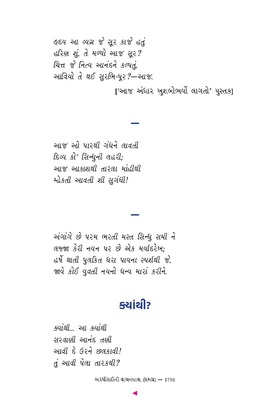 હૃદય આ વ્યગ્ર જે સૂર કાજે હતું
હરિણ શું, તે મળ્યો આજ સૂર?
ચિત્ત જે નિત્ય આનંદને કલ્પતું,
આવિયો તે થઈ સુરભિ-પૂર?—આજ.
['આજ અંધાર ખુશબોભર્યો લાગતો' પુસ્તક]
—
આજ ઓ પારથી ગંધને લાવતી
દિવ્ય કો' સિન્ધુની લહરી;
આજ આકાશથી તારલા માંહીથી
મ્હેકતી આવતી શી સુગંધી!
—
અંગાંગે છે પરમ ભરતી મસ્ત સિન્ધુ સમી ને
લજ્જા કેરી નયન પર છે એક મર્યાદરેખ;
હર્ષે થાતી પુલકિત ધરા પાયના સ્પર્શથી જે,
જાવે કોઈ યુવતી નયનો ધન્ય મારાં કરીને.
ક્યાંથી?
ક્યાંથી... આ ક્યાંથી
સરવાણી આનંદ તણી
આવી દે ઉરને છલકાવી!
તું આવી પેલા તારકથી?
— ૬૧૫૬